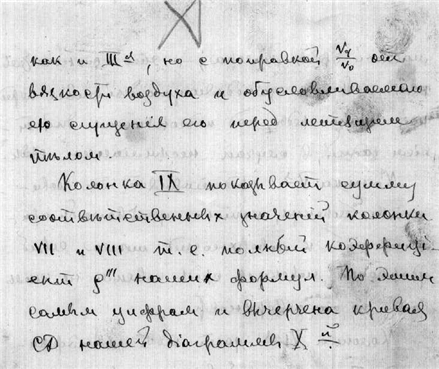 XI
как и III й, но с поправкой v₄/v₀ от
вязкости воздуха и обусловливаемаго
ею сгущенія его перед летящим
тѣлом.
Колонка IX показывает сумму
соотвѣтственных значеній колонки
VII и VIII т. е. полный коэффиці-
ент g''' наших формул. По этим
самым цифрам и вычерчена кривая
CD нашей діаграммы X й